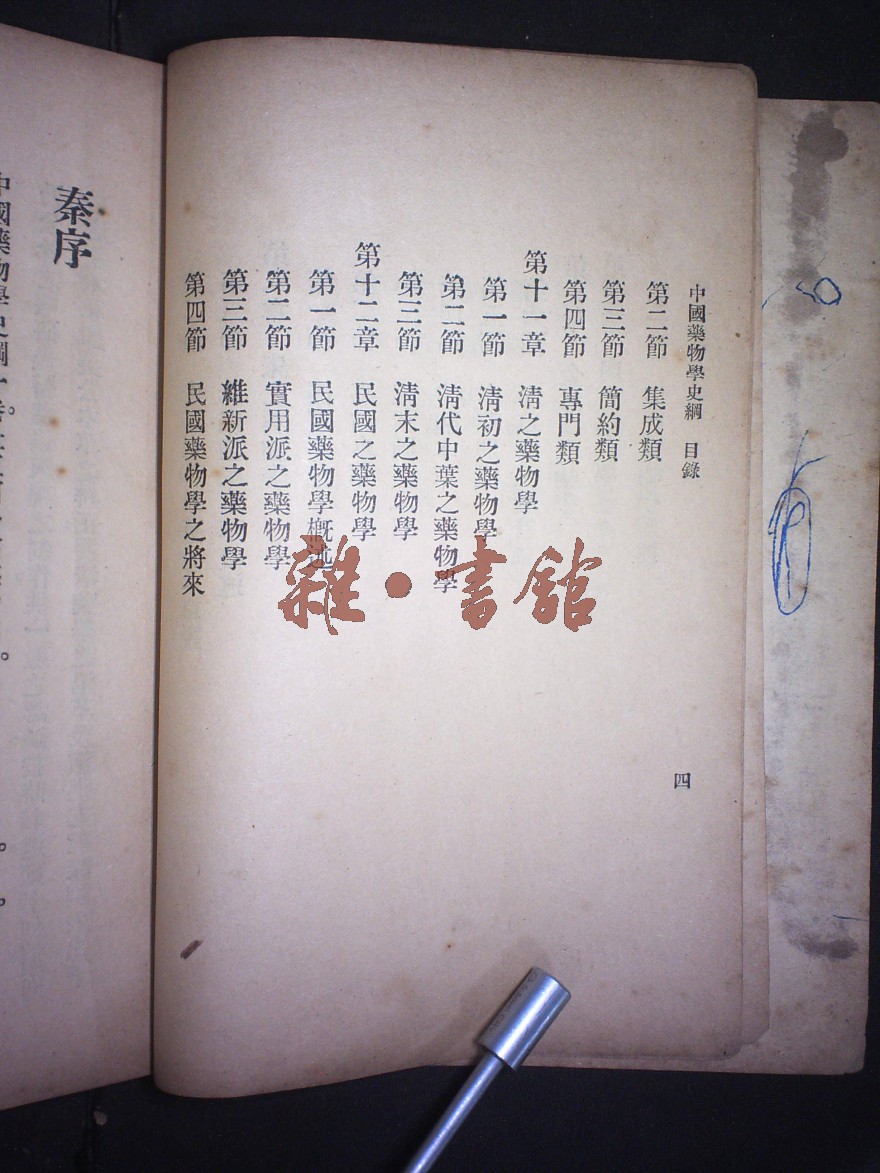 中國藥物學史綱 目錄
四
第二節 集成類
第三節 簡約類
第四節 專門類
第十一章 清之藥物學
第一節 清初之藥物學
第二節 清代中葉之藥物學
第三節 清末之藥物學
第十二章 民國之藥物學
第一節 民國藥物學概述
第二節 實用派之藥物學
第三節 維新派之藥物學
第四節 民國藥物學之將來
雜·書館
秦序
中國藥物學史綱